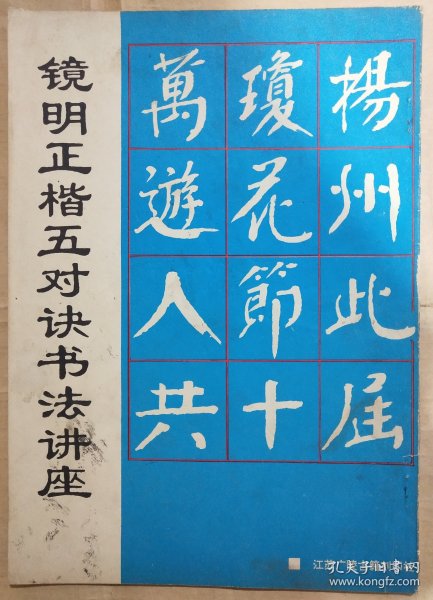 镜明正楷五对诀书法讲座
揚州此屆
瓊花節十
萬遊人共
江苏广陵古籍刻印社
孔夫子旧书网
www.kongfz.com